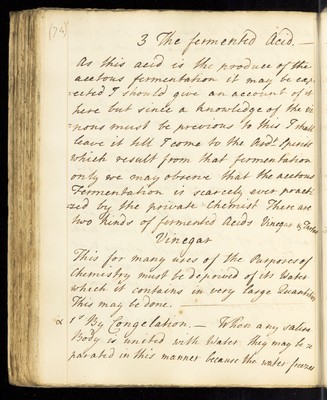 (74)
3 The fermented Acid. —
As this acid is the produce of the
acetous fermentation it may be exp
=ected I should give an account of it
here but since a knowledge of the vi
=nous must be previous to this I shall
leave it till I come to the Ardt. Spirits
which result from that fermentation
only we may observe that the acetous
Fermentation is scarcely ever practi
=zed by the private Chemist There are
two kinds of fermented Acids Vinegar & Tartar
Vinegar
This for many uses of the Purposes of
Chemistry must be deprived of its Water
which it contains in very large Quantities
This may be done.
α 1st By Congelation. — When any saline
Body is united with Water they may be se
parated in this manner because the water freezes